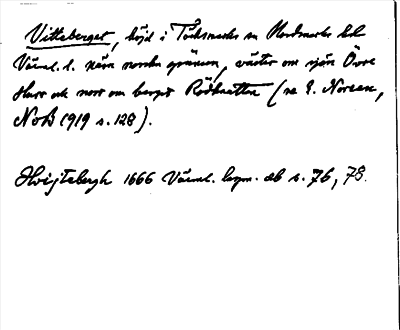 Vitteberget, höjd i Töcksmarks sn Nordmarks hd
Värml. l. nära norska gränsen, väster om sjön Övre
Hurr och norr om berget Rödknatten (se E. Noreen,
NoB 1919 s. 128).
Hvijtebergh 1666 Värml. legm. ab s. 76, 78.